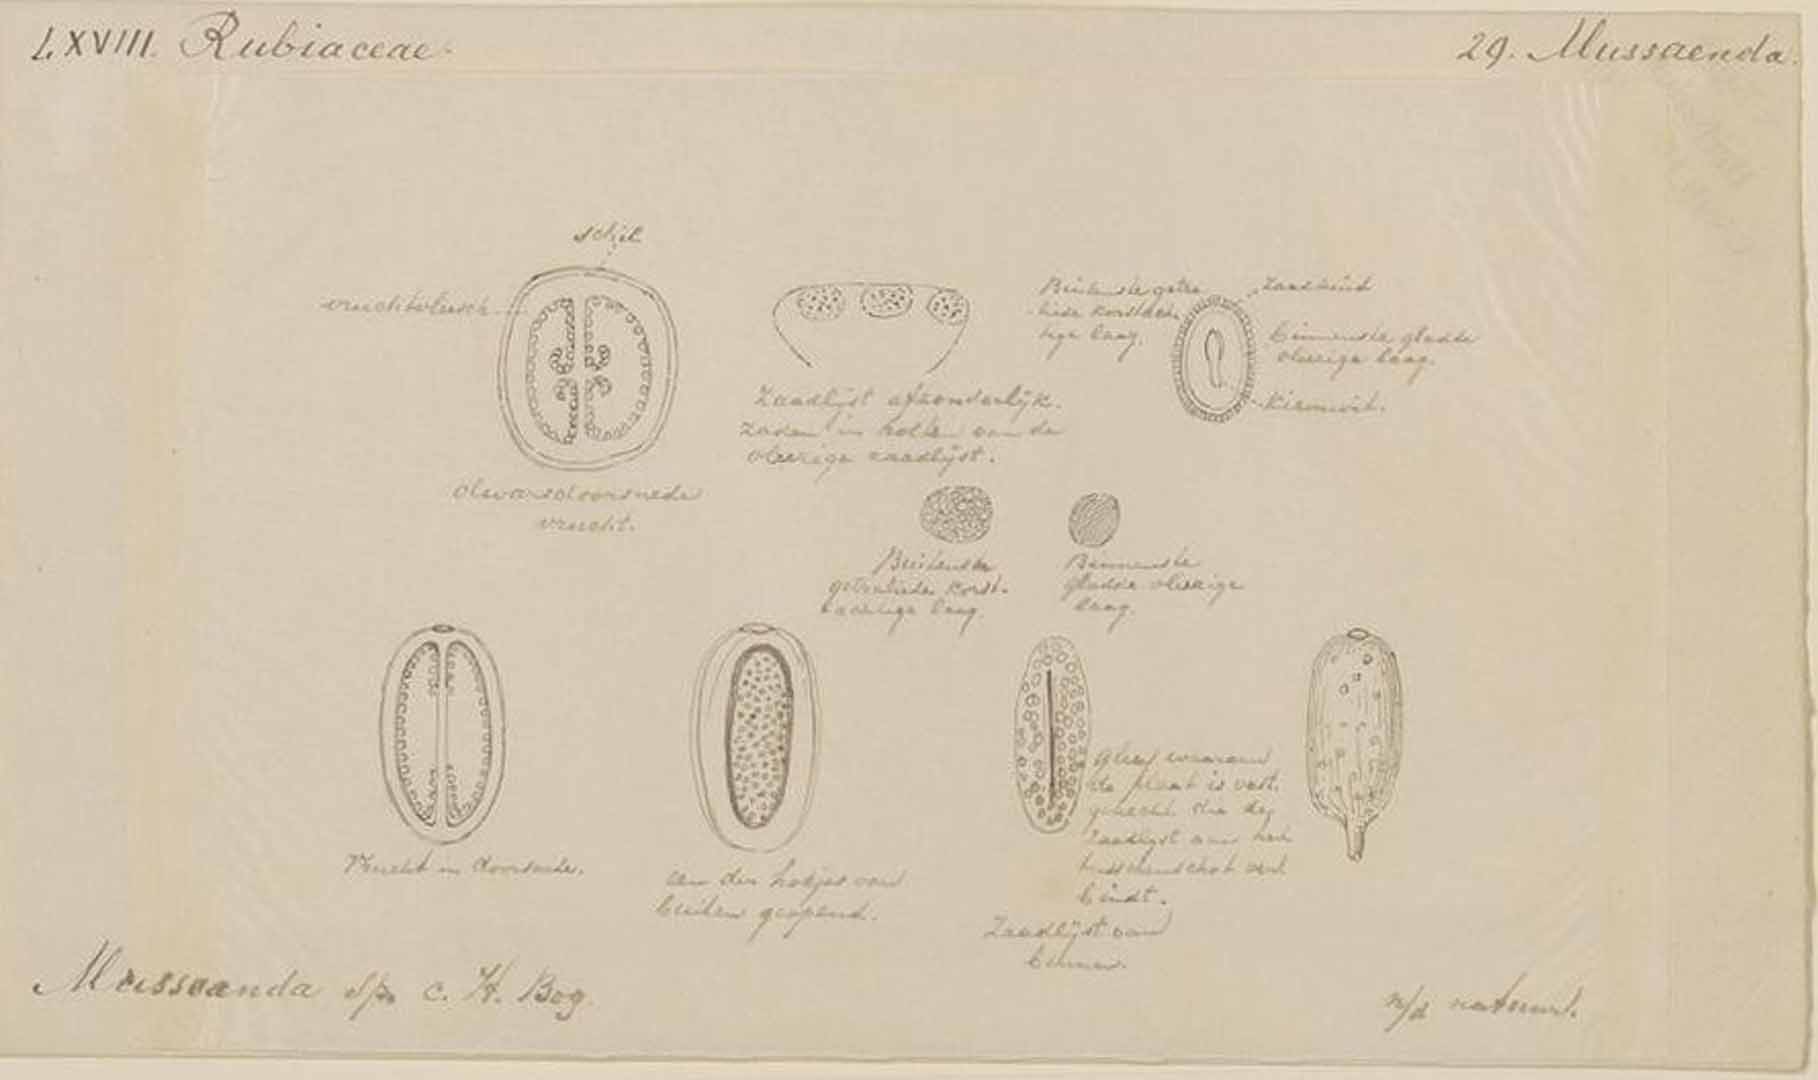 LXVIII. Rubiaceae.
29. Mussaenda.
schil
vruchtvleesch
dwarsdoorsnede
vrucht.
Zaadlijst afzonderlijk.
Zaden in holten van de
vleezige zaadlijst.
Buitenste getra
liede korstach
tige laag.
Zaadhuid
binnenste gladde
vleezige laag.
Kiemwit.
Buitenste
getraliede korst-
achtige laag.
Binnenste
gladde vleezige
laag.
Vrucht in doorsnede.
een der hokjes van
buiten geopend.
gleuf waaraan
de plaat is vast
gehecht die de
zaadlijst aan het
tusschenschot ver
bindt.
Zaadlijst van
binnen.
Mussaenda sp. c. H. Bog.
n/d natuur.